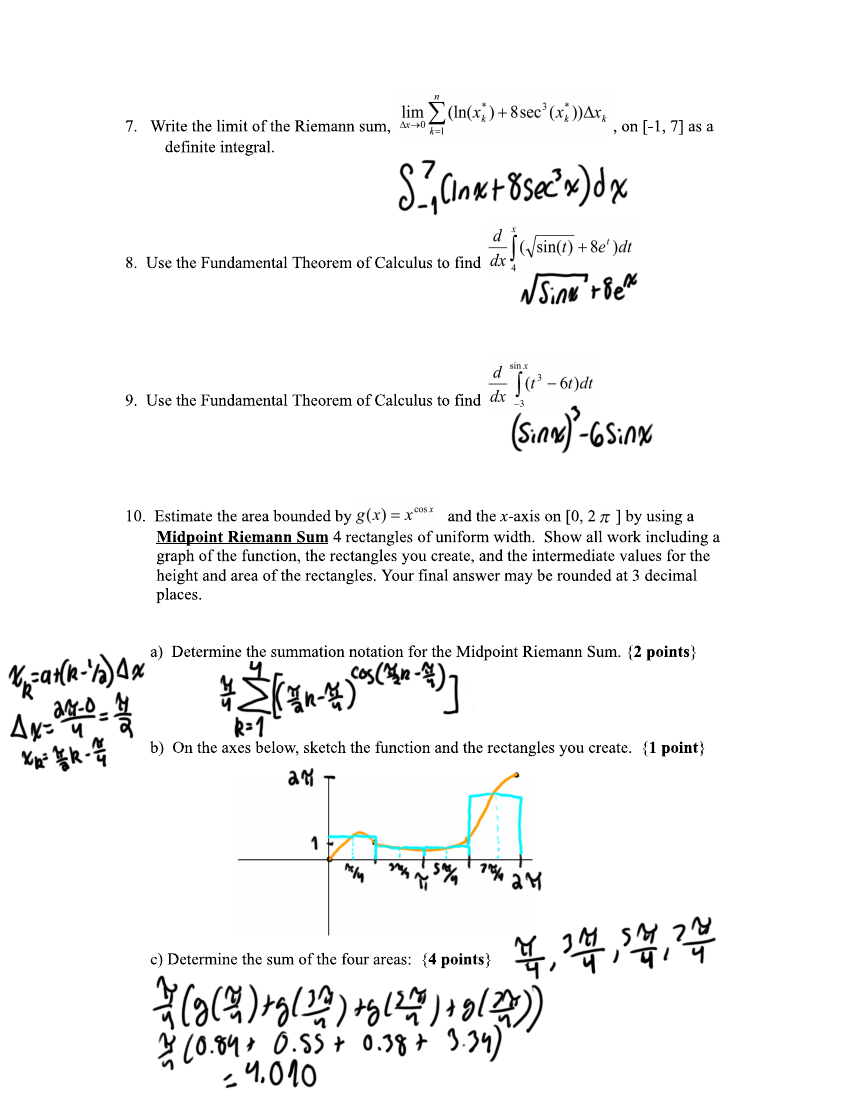 7. Write the limit of the Riemann sum, lim Δx→0 n ∑ k=1 (ln(x*k) + 8sec³(x*k))Δxk , on [-1, 7] as a
definite integral.
∫⁷₋₁(lnx+8sec³x)dx
8. Use the Fundamental Theorem of Calculus to find d/dx ∫₄ˣ(√sin(t) + 8eᵗ)dt
√sinx + 8eˣ
9. Use the Fundamental Theorem of Calculus to find d/dx ∫₋₃ˢⁱⁿ ˣ(t³ − 6t)dt
(sinx)³-6sinx
10. Estimate the area bounded by g(x) = x^cos x and the x-axis on [0, 2 π ] by using a
Midpoint Riemann Sum 4 rectangles of uniform width. Show all work including a
graph of the function, the rectangles you create, and the intermediate values for the
height and area of the rectangles. Your final answer may be rounded at 3 decimal
places.
a) Determine the summation notation for the Midpoint Riemann Sum. {2 points}
xk=a+(k-1/2)Δx
Δx= 2π-0/4 = π/2
xk= π/2 k - π/4
π/4 4 ∑ k=1 [(π/2 k - π/4)^cos(π/2 k - π/4)]
b) On the axes below, sketch the function and the rectangles you create. {1 point}
2π
1
π/4 3π/4 π 5π/4 7π/4 2π
c) Determine the sum of the four areas: {4 points}
π/4, 3π/4, 5π/4, 7π/4
π/4(g(π/4)+g(3π/4)+g(5π/4)+g(7π/4))
π/4(0.84+ 0.55 + 0.38 + 3.34)
= 4.010